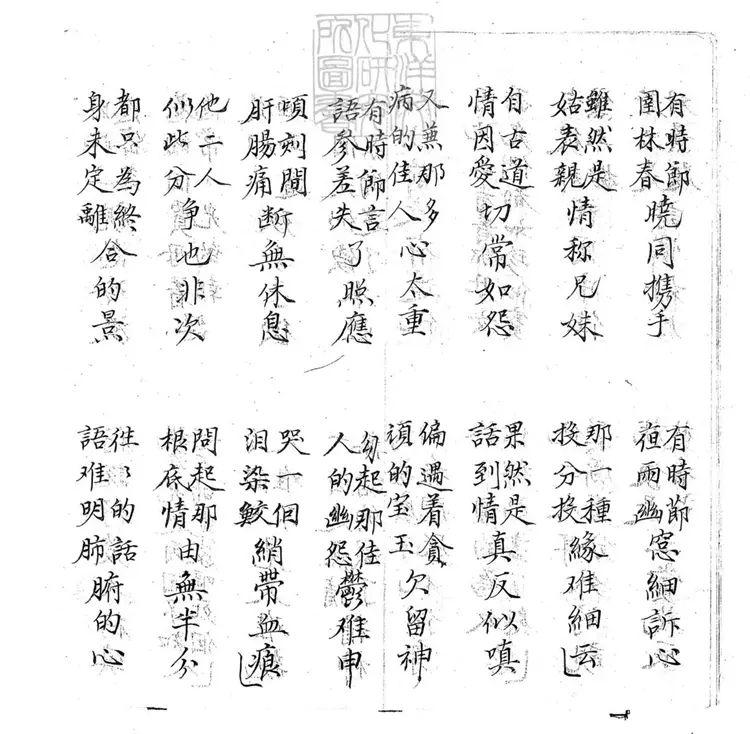 東洋文化研究所圖書
有時節園林春曉同携手
有時節亱雨幽窓細訴心
雖然是姑表親情称兄妹
那一種投分投緣难細云
自古道情因愛切常如怨
果然是話到情真反似嗔
又兼那多病的佳人心太重
偏遇着貪頑的宝玉欠留神
有時節言語參差失了照應
勾起那佳人的幽怨鬱难申
頃刻間肝腸痛断無休息
哭一個泪染鮫綃帶血痕
他二人似此分争也非次
問起那根底情由無半分
都只為終身未定離合的景
往〻的話語难明肺腑的心